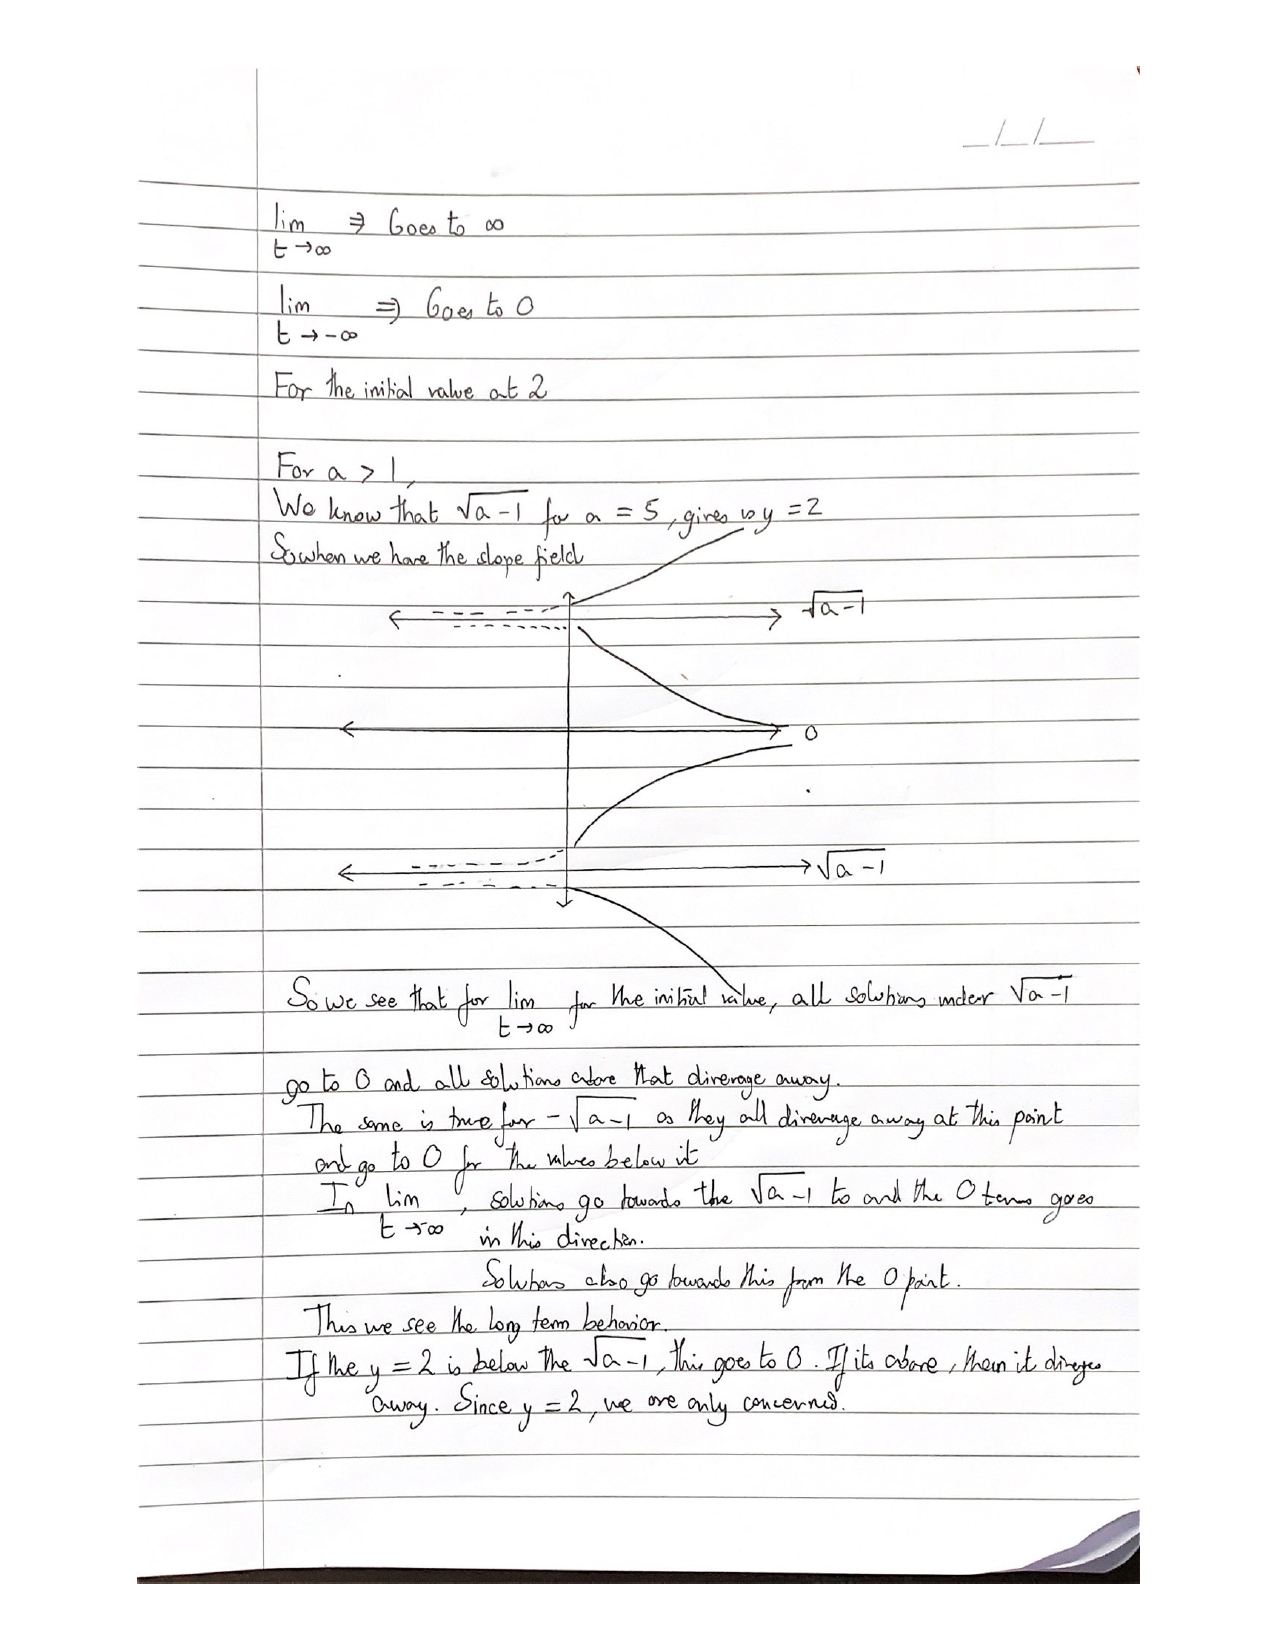 _/_/__
lim ⇒ Goes to ∞
t → ∞
lim ⇒ Goes to 0
t → -∞
For the initial value at 2
For a > 1,
We know that √a-1 for a = 5, gives us y = 2
So when we have the slope field
√a-1
0
√a-1
So we see that for lim for the initial value, all solutions under √a-1
t → ∞
go to 0 and all solutions above that diverage away.
The same is true for -√a-1 as they all diverage away at this point
and go to 0 for the values below it
In lim , solutions go towards the √a-1 to and the 0 terms goes
t → -∞ in this direction.
Solutions also go towards this from the 0 point.
This we see the long term behavior.
If the y = 2 is below the √a-1, this goes to 0. If its above, then it diverges
away. Since y = 2, we are only concerned.